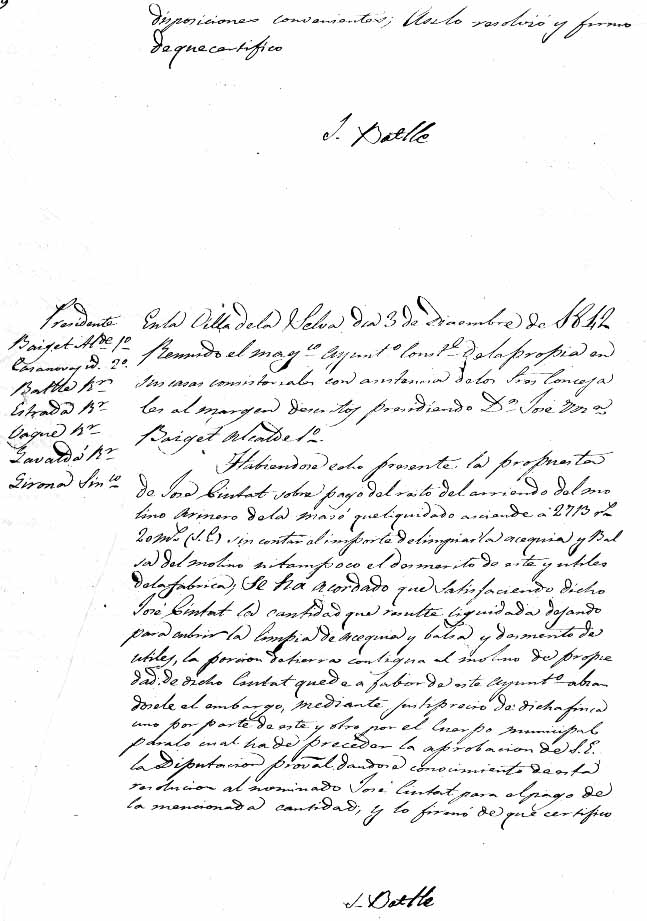 disposiciones convenientes; Aselo resolvió y firmo
de que certifico
J. Batlle
Presidente
Baiget Alde 1º
Casanovas id. 2º
Batlle Rr
Estrada Rr
Vaqué Rr
Gavaldá Rr
Girona Sinco
En la Villa dela Selva dia 3 de Diciembre de 1842
Reunido el magco Ayunto Constl dela propia en
sus casas consistoriales con asistencia delos Sres Conceja
les al márgen descritos presidiendo Dn José
Baiget Alcalde 1º.
Habiendose echo presente la propuesta
de José Ciutat sobre pago del resto del arriendo del mo
lino Arinero dela masó que liquidado asciende á 2713 rs
20 ms (S.E.) sin contar el importe de limpiar la acequia y Bal
sa del molino ni tampoco el desmerito de este y utiles
dela fabrica; Se ha acordado que satisfaciendo dicho
José Ciutat la cantidad que resulte liquidada dejando
para cubrir la limpia de acequia y balsa y desmerito de
utiles, la porcion de tierra contigua al molino de propie
dad de dicho Ciutat quede a fabor de este Ayunto alzan
dosele el embargo, mediante justiprecio de dicha finca
uno por parte de este y otro por el Cuerpo municipal
para lo cual ha de preceder la aprobacion de S.E.
la Diputacion proval. dandose conocimiento de esta
resolucion al nominado José Ciutat para el pago de
la mencionada cantidad; y lo firmó de que certifico
J. Batlle